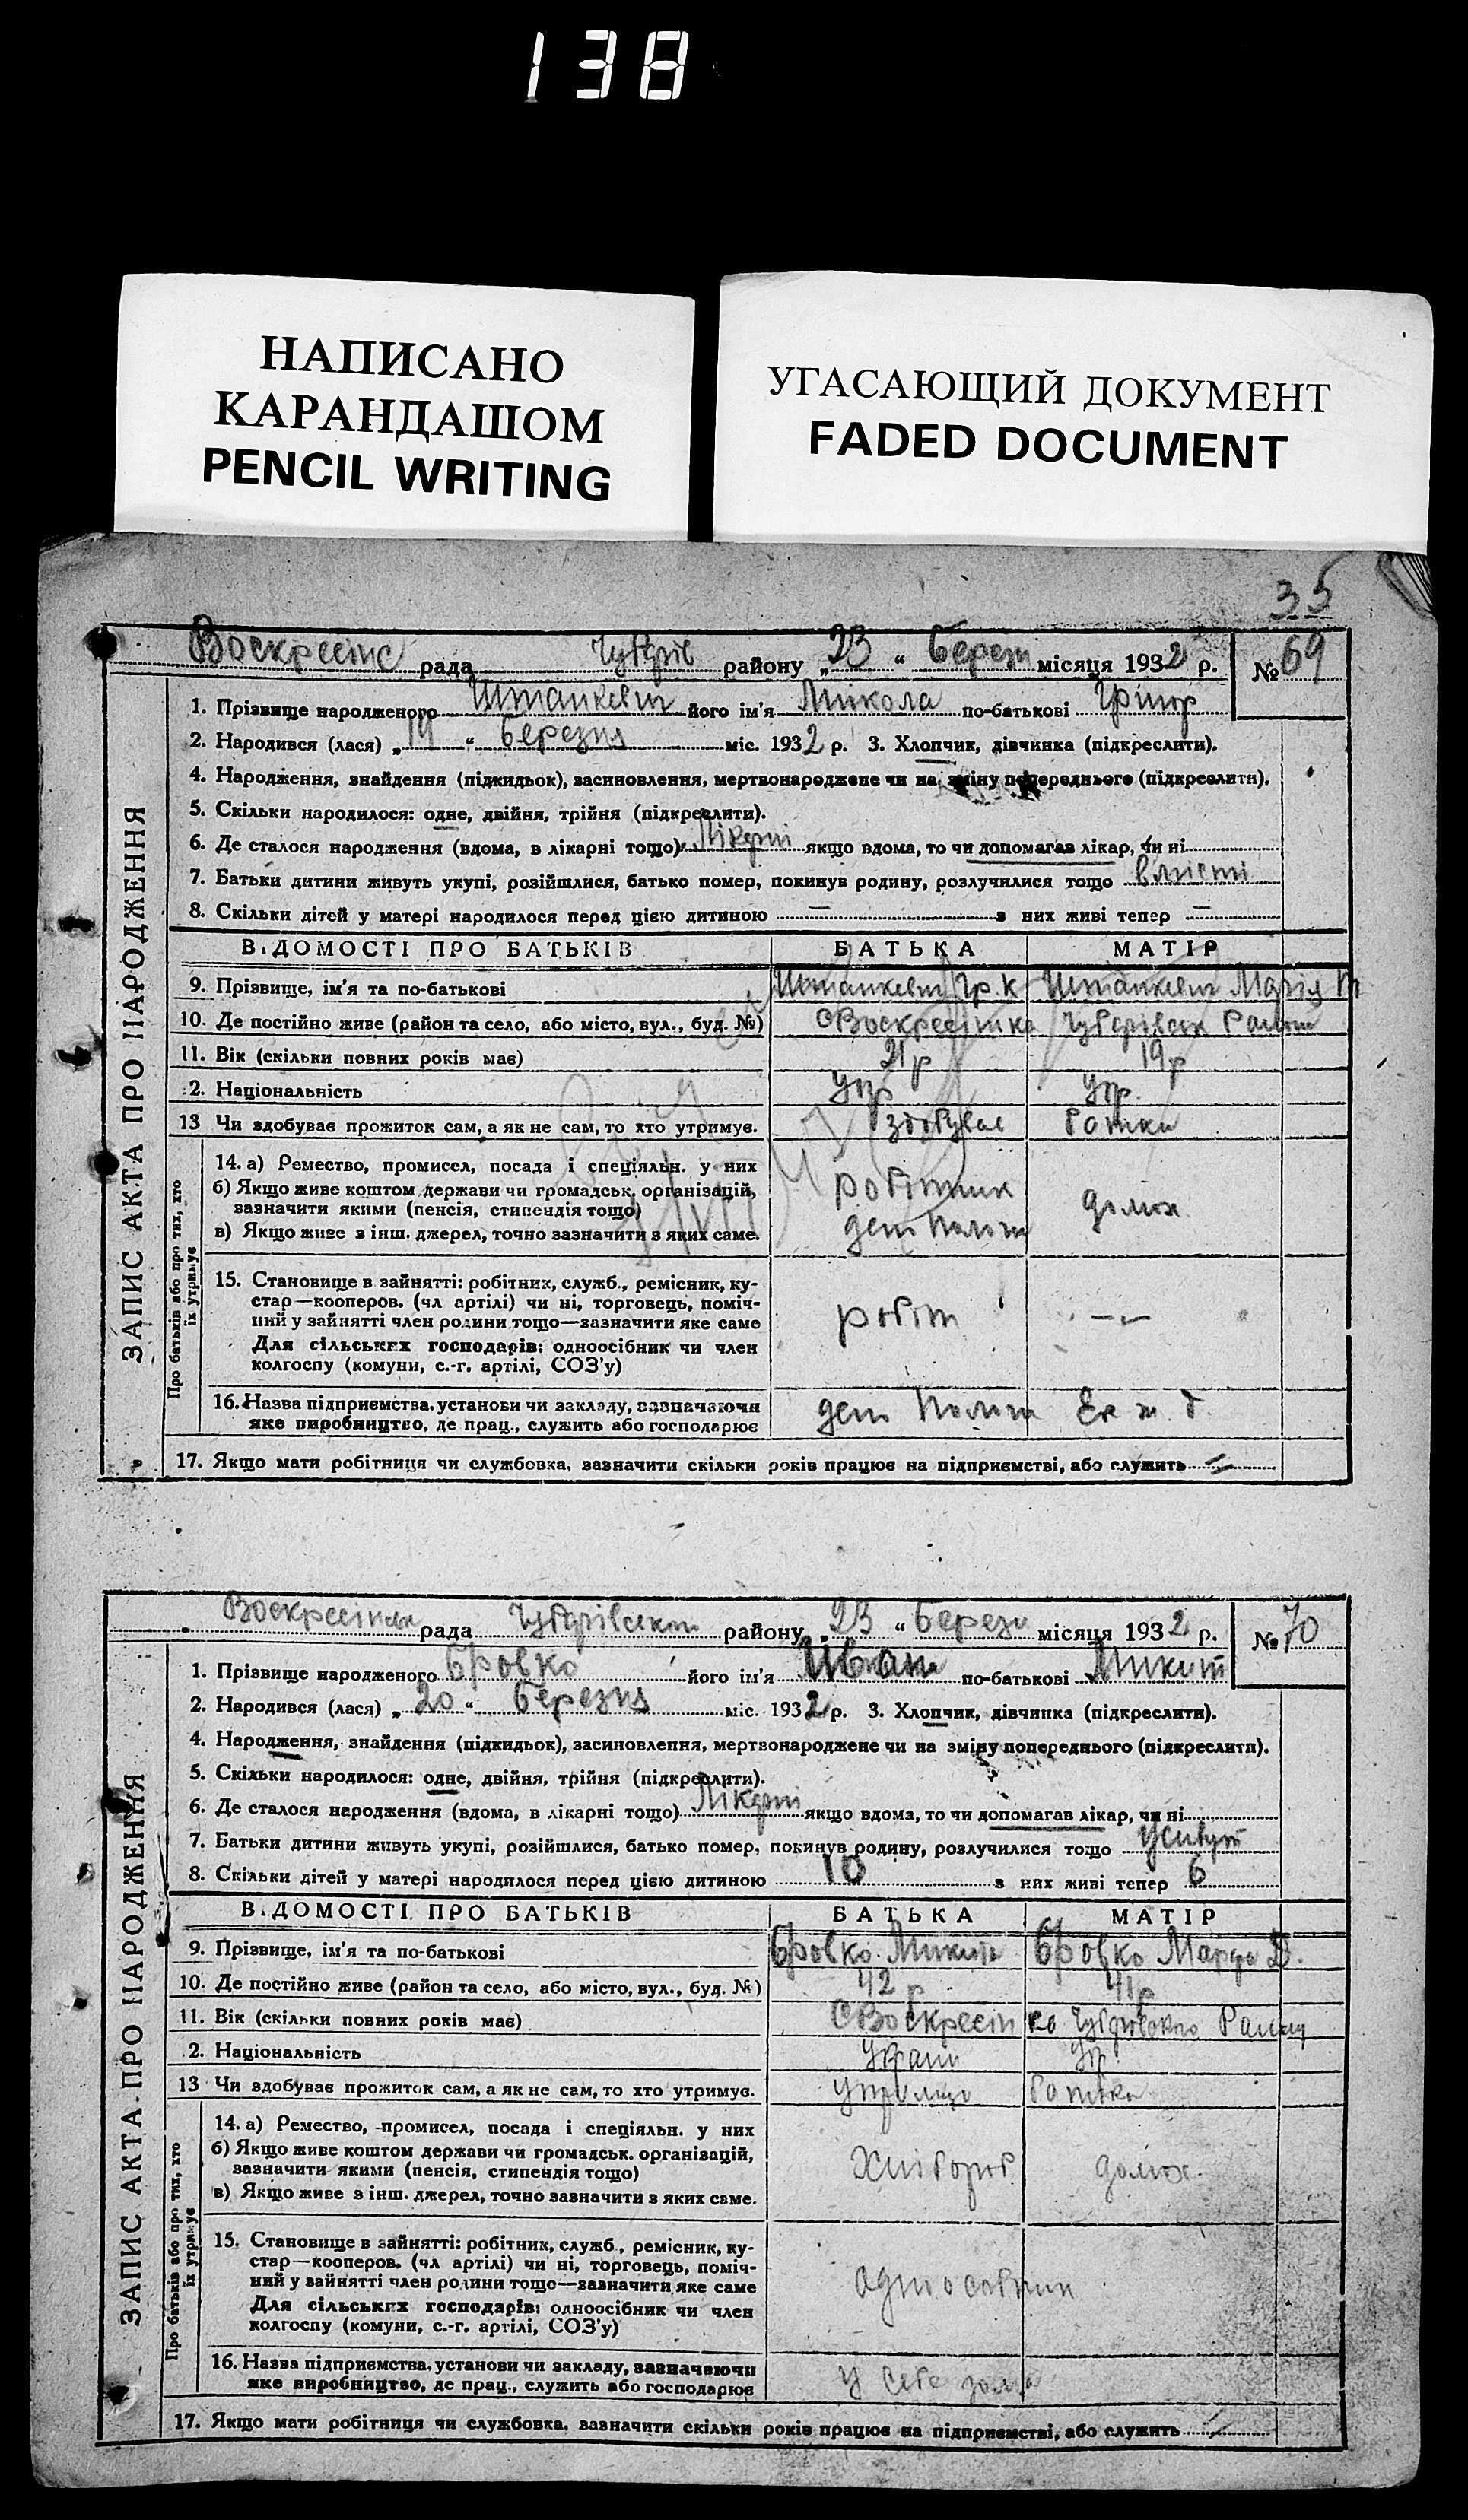 138
НАПИСАНО
КАРАНДАШОМ
PENCIL WRITING
УГАСАЮЩИЙ ДОКУМЕНТ
FADED DOCUMENT
35
ЗАПИС АКТА ПРО НАРОДЖЕННЯ
Воскресінс рада Чубарів району „23“ Берез місяця 1932 р. № 69
1. Прізвище народженого Штанкевич його ім'я Микола по-батькові Григор
2. Народився (лася) „19“ березня міс. 1932 р. 3. Хлопчик, дівчинка (підкреслити).
4. Народження, знайдення (підкидьок), засиновлення, мертвонароджене чи на зміну попереднього (підкреслити).
5. Скільки народилося: одне, двійня, трійня (підкреслити).
6. Де сталося народження (вдома, в лікарні тощо) якщо вдома, то чи допомагав лікар, чи ні
7. Батьки дитини живуть укупі, розійшлися, батько помер, покинув родину, розлучилися тощо
8. Скільки дітей у матері народилося перед цією дитиною — з них живі тепер —
ВІДОМОСТІ ПРО БАТЬКІВ БАТЬКА МАТІР
9. Прізвище, ім'я та по-батькові Штанкевич Гр. К Штанкевич Марія
10. Де постійно живе (район та село, або місто, вул., буд. №) с Воскресінка Чубарівськ Району
11. Вік (скільки повних років має) 21 р 19 р
2. Національність Укр Укр.
13 Чи здобуває прожиток сам, а як не сам, то хто утримує. здобуває батьки
Про батьків або про тих, хто їх утримує
14. а) Ремество, промисел, посада і спеціяльн. у них
б) Якщо живе коштом держави чи громадськ. організацій,
зазначити якими (пенсія, стипендія тощо)
в) Якщо живе з інш. джерел, точно зазначити з яких саме.
робітник
депо Пологи
домох.
15. Становище в зайнятті: робітник, служб., ремісник, ку-
стар—кооперов. (чл артілі) чи ні, торговець, поміч-
ний у зайнятті член родини тощо—зазначити яке саме
Для сільських господарів: одноосібник чи член
колгоспу (комуни, с.-г. артілі, СОЗ'у)
робіт
16. Назва підприємства, установи чи закладу, зазначаючи
яке виробництво, де прац., служить або господарює
депо Пологи
17. Якщо мати робітниця чи службовка, зазначити скільки років працює на підприємстві, або служить
ЗАПИС АКТА ПРО НАРОДЖЕННЯ
Воскресінськ рада Чубарівського району „23“ Березн місяця 1932 р. № 70
1. Прізвище народженого Бровко його ім'я Иван по-батькові Микит
2. Народився (лася) „20“ березня міс. 1932 р. 3. Хлопчик, дівчинка (підкреслити).
4. Народження, знайдення (підкидьок), засиновлення, мертвонароджене чи на зміну попереднього (підкреслити).
5. Скільки народилося: одне, двійня, трійня (підкреслити).
6. Де сталося народження (вдома, в лікарні тощо) якщо вдома, то чи допомагав лікар, чи ні
7. Батьки дитини живуть укупі, розійшлися, батько помер, покинув родину, розлучилися тощо
8. Скільки дітей у матері народилося перед цією дитиною 10 з них живі тепер 6
ВІДОМОСТІ ПРО БАТЬКІВ БАТЬКА МАТІР
9. Прізвище, ім'я та по-батькові Бровко Микита Бровко Марфа
10. Де постійно живе (район та село, або місто, вул., буд. №) 42 р 41 р
11. Вік (скільки повних років має) с Воскресінка Чубарівського Району
2. Національність Україн Укр.
13 Чи здобуває прожиток сам, а як не сам, то хто утримує.
Про батьків або про тих, хто їх утримує
14. а) Ремество, промисел, посада і спеціяльн. у них
б) Якщо живе коштом держави чи громадськ. організацій,
зазначити якими (пенсія, стипендія тощо)
в) Якщо живе з інш. джерел, точно зазначити з яких саме.
Хлібороб домох.
15. Становище в зайнятті: робітник, служб., ремісник, ку-
стар—кооперов. (чл артілі) чи ні, торговець, поміч-
ний у зайнятті член родини тощо—зазначити яке саме
Для сільських господарів: одноосібник чи член
колгоспу (комуни, с.-г. артілі, СОЗ'у)
одноособник
16. Назва підприємства, установи чи закладу, зазначаючи
яке виробництво, де прац., служить або господарює
у себе дома
17. Якщо мати робітниця чи службовка, зазначити скільки років працює на підприємстві, або служить